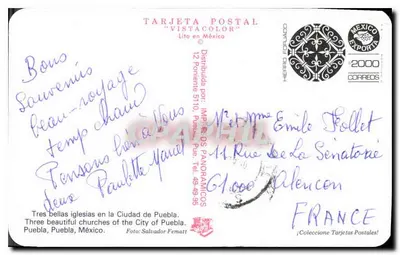 TARJETA POSTAL
"VISTACOLOR"
Lito en México
©
HIERRO FORJADO
MEXICO
EXPORTA
2000
CORREOS
Bons
Souvenirs
beau-voyage
temp chaud
Pensons bien a vous
deux Paulette-
Distribuido por: IMPULSOS PANORAMICOS
12 Poniente 5110, Puebla, Pue. Tel. 48-49-95
Mr et Mme Emile Follet
11 Rue De La Sénatorie
61000 Alencon
FRANCE
Tres bellas iglesias en la Ciudad de Puebla.
Three beautiful churches of the City of Puebla.
Puebla, Puebla, México.
Foto: Salvador Fematt
¡Coleccione Tarjetas Postales!